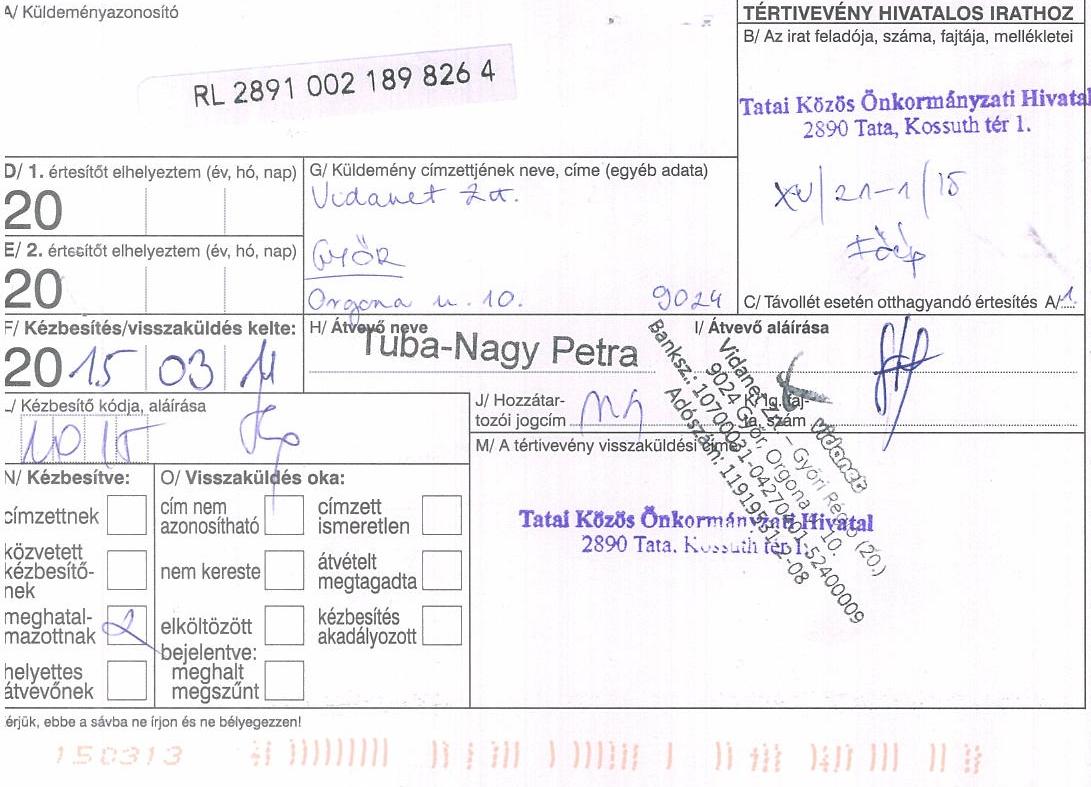 A/ Küldeményazonosító
RL 2891 002 189 826 4
TÉRTIVEVÉNY HIVATALOS IRATHOZ
B/ Az irat feladója, száma, fajtája, mellékletei
Tatai Közös Önkormányzati Hivatal
2890 Tata, Kossuth tér 1.
XV/21-1/15
Főép
C/ Távollét esetén otthagyandó értesítés A/1.
D/ 1. értesítőt elhelyeztem (év, hó, nap)
20
E/ 2. értesítőt elhelyeztem (év, hó, nap)
20
G/ Küldemény címzettjének neve, címe (egyéb adata)
Vidanet Zrt.
GYŐR
Orgona u. 10. 9024
F/ Kézbesítés/visszaküldés kelte:
2015 03 11
H/ Átvevő neve
Tuba-Nagy Petra
I/ Átvevő aláírása
L/ Kézbesítő kódja, aláírása
1015
J/ Hozzátar-
tozói jogcím
K/ Ig. faj-
ta, szám
M/ A tértivevény visszaküldési címe
Tatai Közös Önkormányzati Hivatal
2890 Tata, Kossuth tér 1.
Vidanet Zrt. – Győri Régió (20.)
9024 Győr, Orgona u. 10.
Banksz.: 10700031-04270401-52400009
vidanet
N/ Kézbesítve:
címzettnek
közvetett
kézbesítő-
nek
meghatal-
mazottnak
helyettes
átvevőnek
O/ Visszaküldés oka:
cím nem
azonosítható
nem kereste
elköltözött
bejelentve:
meghalt
megszűnt
címzett
ismeretlen
átvételt
megtagadta
kézbesítés
akadályozott
érjük, ebbe a sávba ne írjon és ne bélyegezzen!
150313